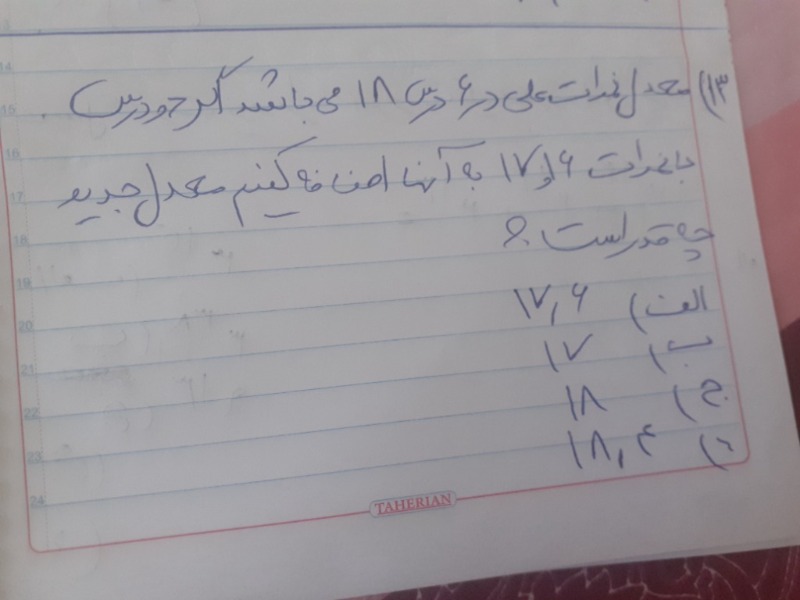 ۱۳) معدل نمرات علی در ۶ درس ۱۸ می باشد اگر دو درس
با نمرات ۱۶ و ۱۷ به آنها اضافه کنیم معدل جدید
چه قدر است ؟
الف) ۱۷,۶
ب) ۱۷
ج) ۱۸
د) ۱۸,۴
14
15
16
17
18
19
20
21
22
23
24
TAHERIAN